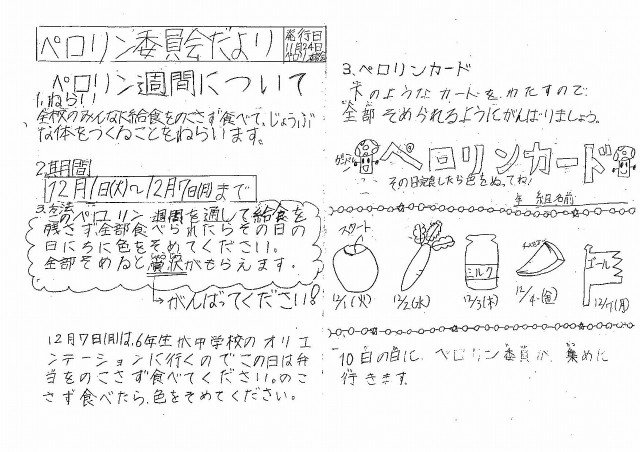 ペロリン委員会だより
発行日
11月24日
ペロリン
ペロリン週間について
1.ねらい
全校のみんなに給食をのこさず食べて、じょうぶ
な体をつくることをねらいます。
2.期間
12月1日(火)〜12月7日(月)まで
3.方法
このペロリン週間を通して給食を
残さず全部食べられたらその日の
日にちに色をそめてください。
全部そめると賞状がもらえます。
→がんばってください!
12月7日(月)は、6年生が水中学校のオリエ
ンテーションに行くのでこの日は弁
当をのこさず食べてください。のこ
さず食べたら、色をそめてください。
3.ペロリンカード
下のようなカードをわたすので、
全部そめられるようにがんばりましょう。
ペロリンカード
その日完食したら色をぬってね!
年 組 名前
スタート
ミルク
ゴール
12/1(火)
12/2(水)
12/3(木)
12/4(金)
12/7(月)
10日の日に、ペロリン委員が、集めに
行きます。